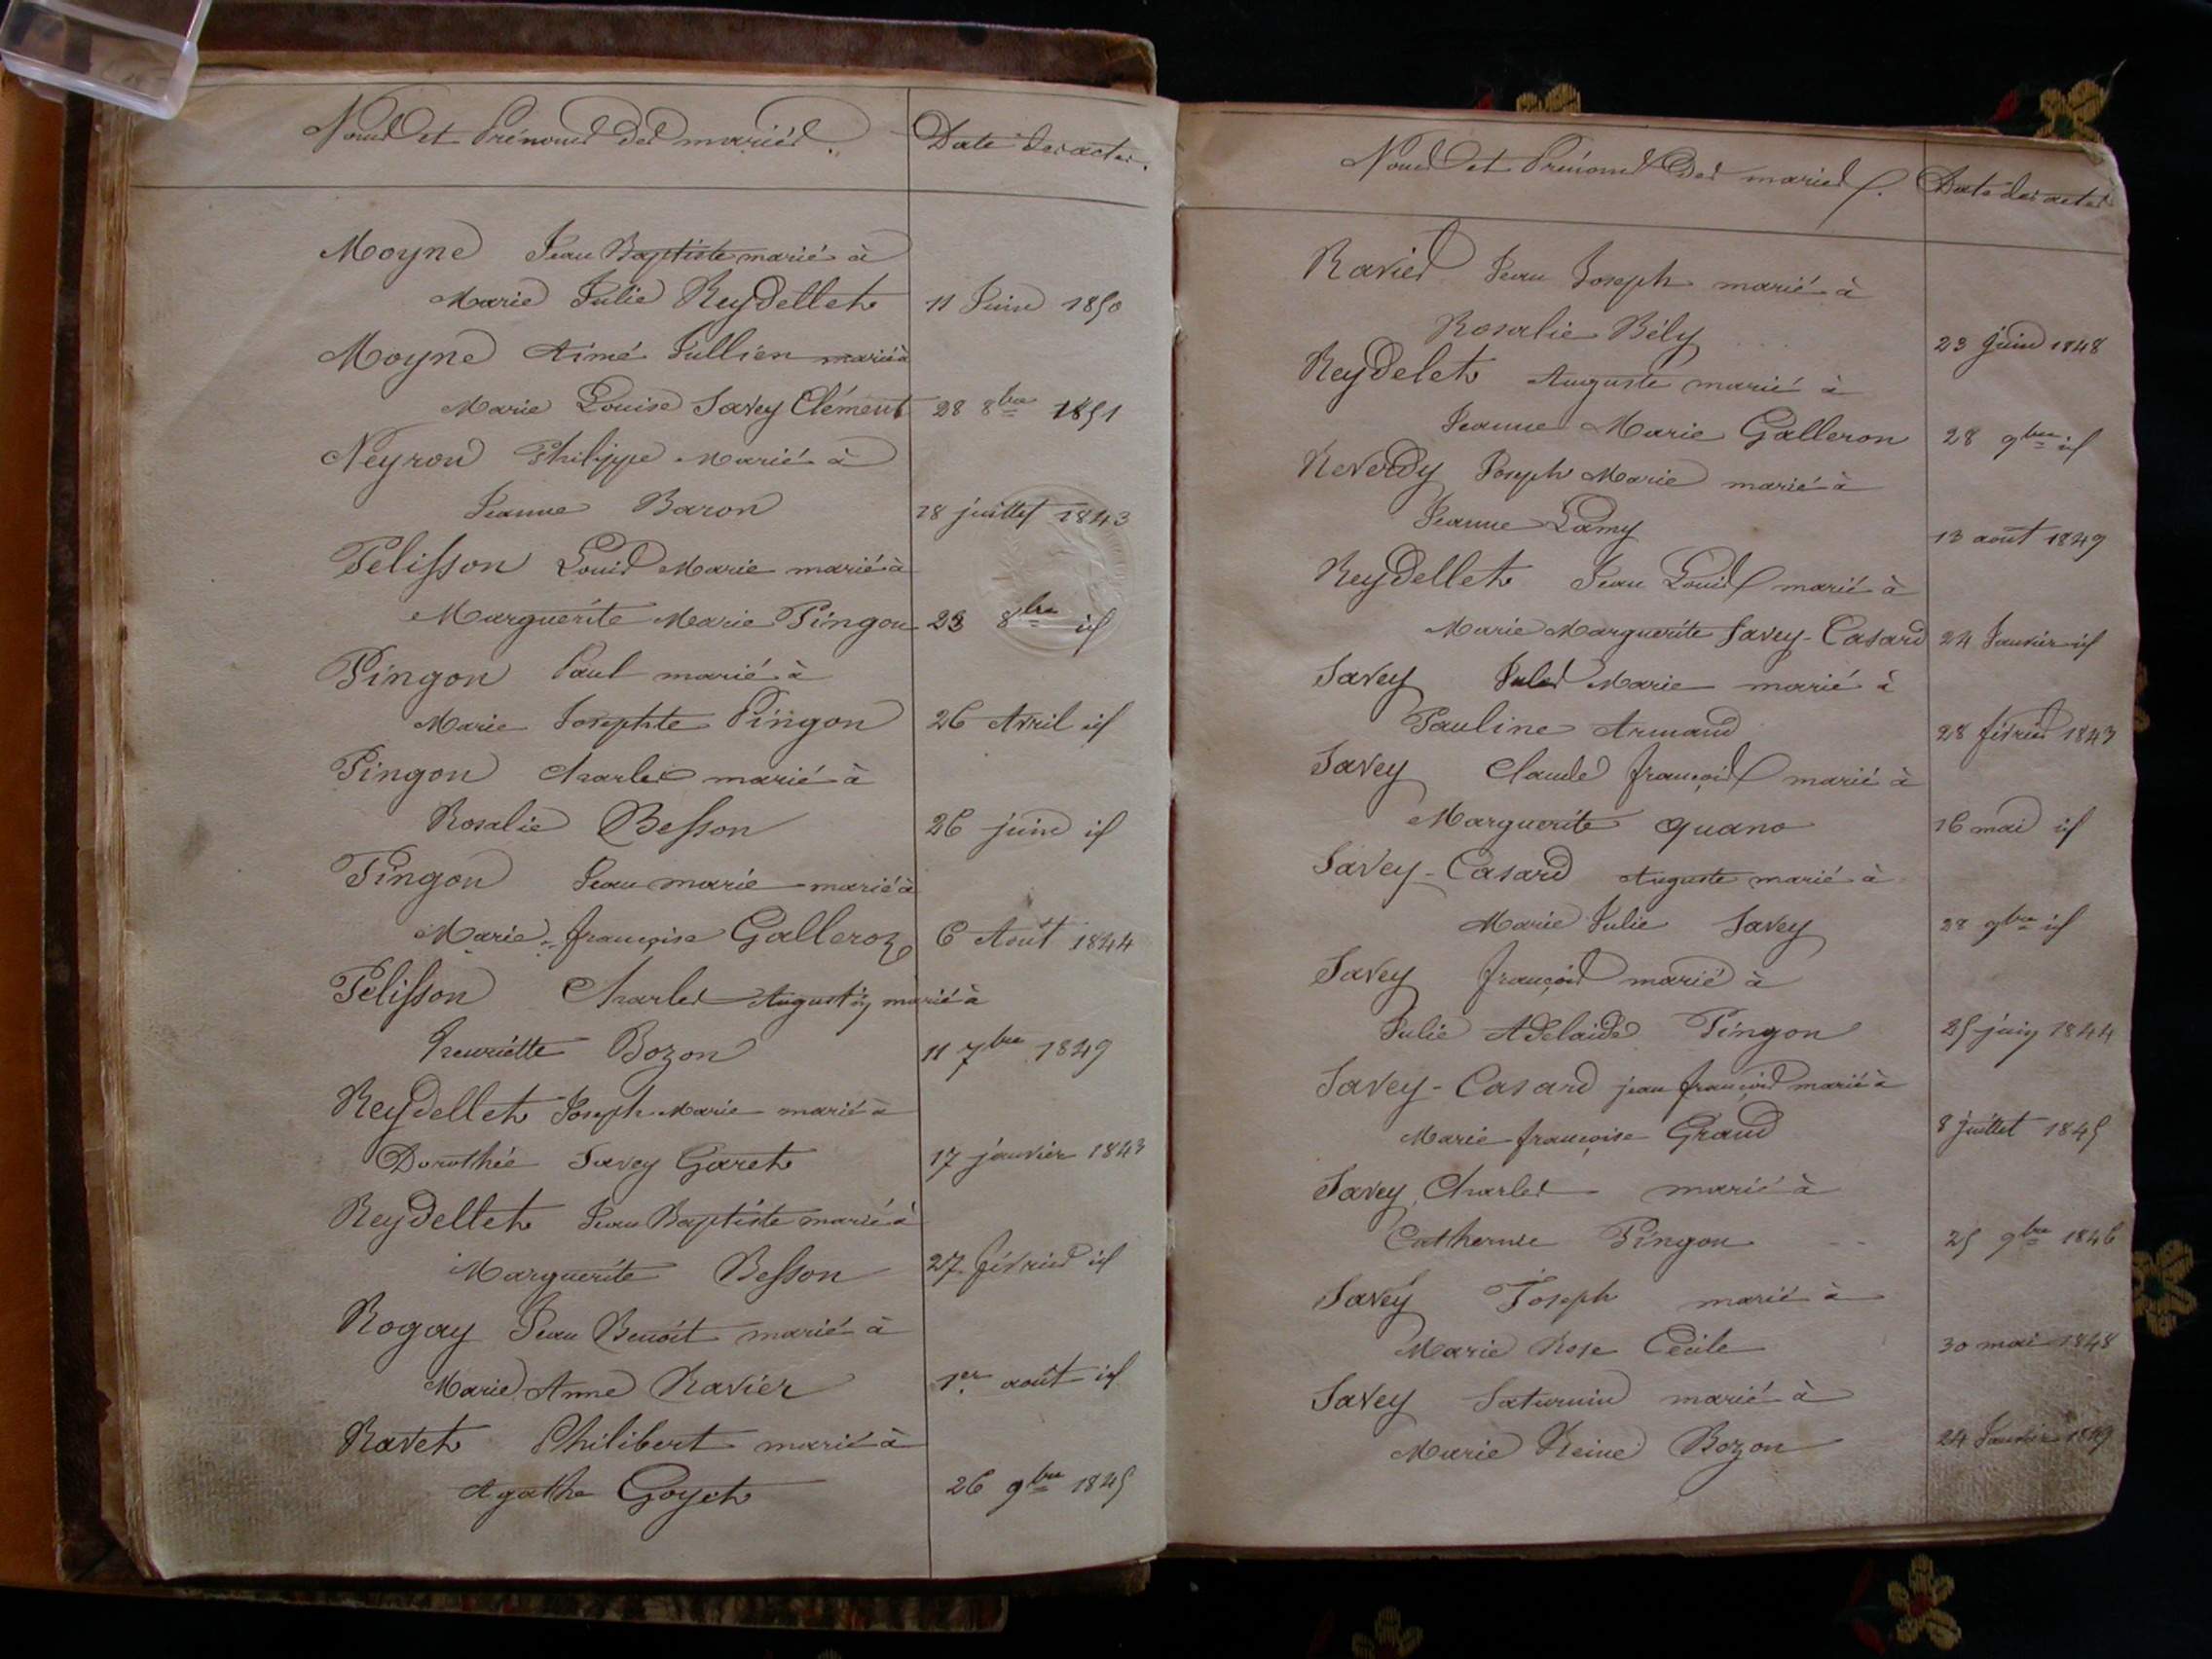 Noms et Prénoms des mariés. Date des actes.
Moyne Jean Baptiste marié à
Marie Julie Reydellet 11 Juin 1850
Moyne Aimé Jullien marié à
Marie Louise Savey Clément 28 8bre 1851
Neyron Philippe Marié à
Jeanne Baron 18 juillet 1843
Pelisson Louis Marie marié à
Marguerite Marie Pingon 23 8bre id
Pingon Paul marié à
Marie Josephte Pingon 26 Avril id
Pingon Charles marié à
Rosalie Besson 26 juin id
Pingon Jean marie marié à
Marie françoise Galleron 6 Août 1844
Pélisson Charles Augustin marié à
henriette Bozon 11 7bre 1849
Reydellet Joseph Marie marié à
Dorothée Savey Garet 17 janvier 1843
Reydellet Jean Baptiste marié à
Marguerite Besson 27 février id
Rogay Jean Benoît marié à
Marie Anne Ravier 1er août id
Ravet Philibert marié à
Agathe Goyet 26 9bre 1845
Noms et Prénoms des mariés. Date des actes
Ravier Jean Joseph marié à
Rosalie Bély 23 juin 1848
Reydelet Auguste marié à
Jeanne Marie Galleron 28 9bre id
Reverdy Joseph Marie marié à
Jeanne Lamy 13 août 1849
Reydellet Jean Louis marié à
Marie Marguerite Savey-Casard 24 Janvier id
Savey Jules Marie marié à
Pauline Armand 28 février 1843
Savey Claude françois marié à
Marguerite quano 16 mai id
Savey-Casard Auguste marié à
Marie Julie Savey 28 9bre id
Savey françois marié à
Julie Adelaide Pingon 25 juin 1844
Savey-Casard jean françois marié à
Marie françoise Grand 8 juillet 1845
Savey Charles marié à
Catherine Pingon 25 9bre 1846
Savey Joseph marié à
Marie Rose Cécile 30 mai 1848
Savey Saturnin marié à
Marie Reine Bozon 24 Janvier 1849